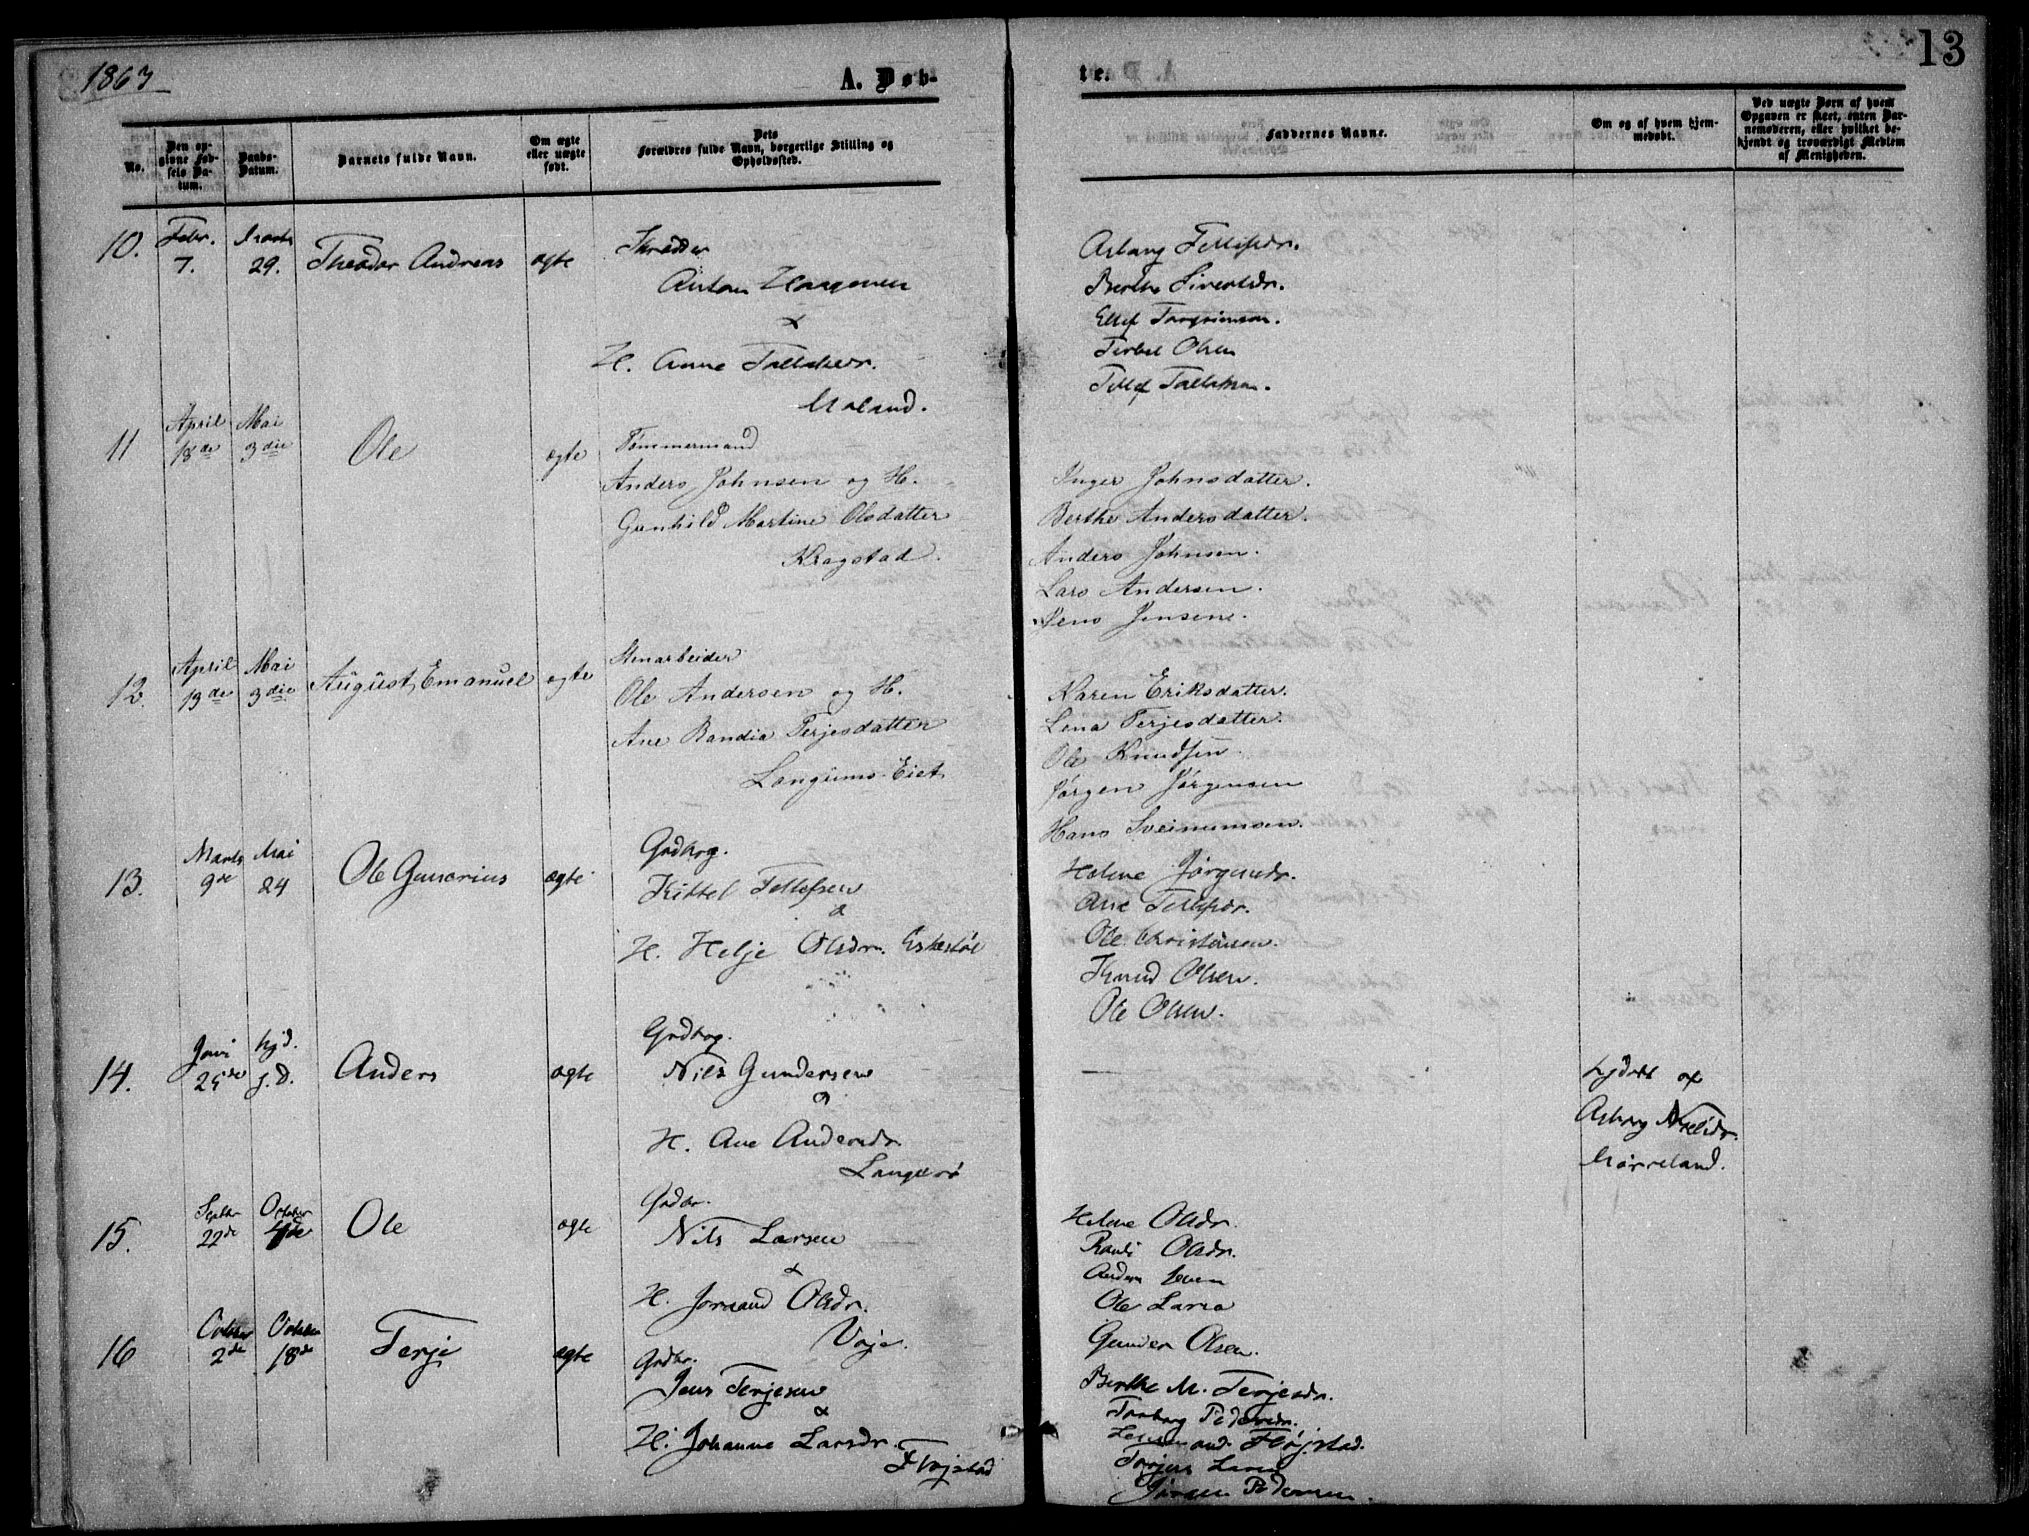 1863
A. Døb-
te.
13
No.
Den op-
givne Fød-
sels Da-
tum.
Daabs-
Datum.
Barnets fulde Navn.
Om ægte
eller uægte
født.
Dets
Forældres fulde Navn, borgerlige Stilling og
Opholdssted.
Faddernes Navne.
Om og af hvem hjem-
medøbt.
Ved uægte Børn af hvem
Opgaven er skeet, enten Bar-
nemoderen, eller hvilket be-
kjendt og troværdigt Medlem
af Menigheden.
10. Febr. 7. Marts 29. Theodor Andreas ægte
Skrædder
Anton
H. Anne Tallaksdr.
Moland.
Asborg Tellefsdr.
Berthe Sivertsdr.
Ellef
Terkel Olsen
Tellef Tallaksen.
11 April 18de Mai 3die Ole ægte
Tømmermand
Anders Johnsen og H.
Gunhild Martine Olsdatter
Kragstad.
Inger Johnsdatter.
Berthe Andersdatter.
Anders Johnsen.
Lars Andersen.
Jens Jensen.
12. April 13de Mai 3die August Emanuel ægte
Stenarbeider
Ole Andersen og H.
Ane Bandia Terjesdatter
Langums Eiet
Karen Eriksdatter.
Lena Terjesdatter.
Ole Knudsen.
Jørgen Jørgensen
Hans Sveinumsen.
13. Marts 9de Mai 24 Ole Gunerius ægte
Grdbrg.
Kittel Tellefsen
&
H. Helje Olsdr. Eskestøl
Helene Jørgensdr.
Ane Tellefsdr.
Ole Christensen.
Knud Olsen.
Ole Olsen.
14. Juni 25de hjd. Anders ægte
Grdbrg.
Nils Gundersen
og
H. Ane Andersdr.
Langerø
af
Asborg
15. Septbr 22de October 4de Ole ægte
Grdbr.
Nils Larsen
&
H. Jorand Olsdr.
Voje.
Helene Olsdr.
Randi Olsdr.
Ole
Gunder Olsen.
16 October 2de October 18de Terje ægte
Grdbr.
Jens Terjesen
&
H. Johanne Larsdr.
Fløjstad
Berthe M. Terjesdr.
Taaborg Pedersdr.
Fløjstad.
Pedersen.